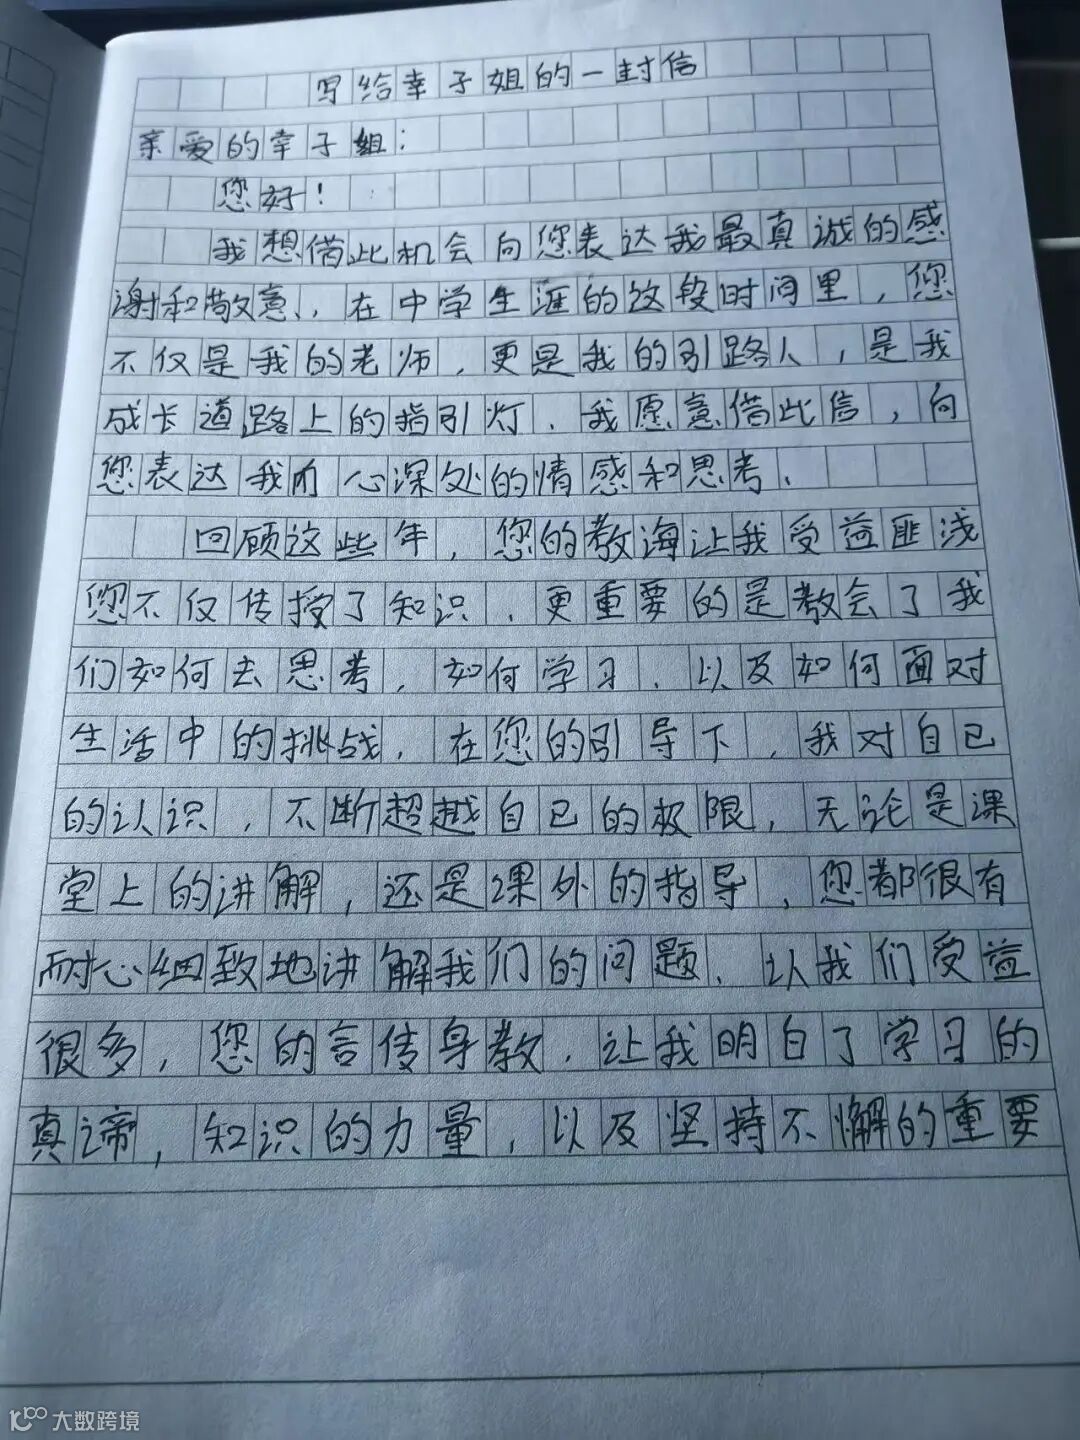 写给幸子姐的一封信
亲爱的幸子姐:
您好!
我想借此机会向您表达我最真诚的感
谢和敬意,在中学生涯的这段时间里,您
不仅是我的老师,更是我的引路人,是我
成长道路上的指引灯.我愿意借此信,向
您表达我内心深处的情感和思考.
回顾这些年,您的教诲让我受益匪浅
您不仅传授了知识,更重要的是教会了我
们如何去思考,如何学习,以及如何面对
生活中的挑战,在您的引导下,我对自己
的认识,不断超越自己的极限,无论是课
堂上的讲解,还是课外的指导,您都很有
耐心细致地讲解我们的问题.以我们受益
很多,您的言传身教,让我明白了学习的
真谛,知识的力量,以及坚持不懈的重要
大数跨境